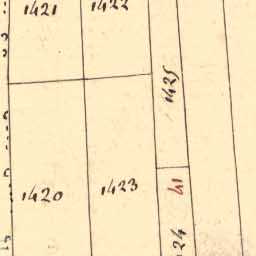 1421
1422
1425
1420
1423
41
24